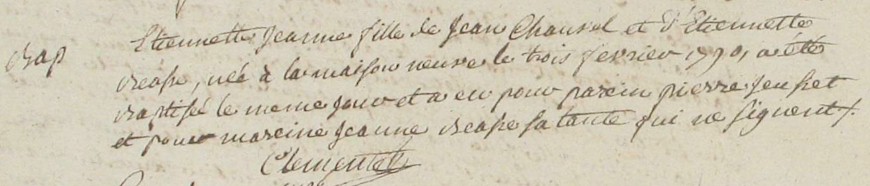 Bap
Etiennette Jeanne fille de Jean Chausel et d'Etiennette
née à la maison neuve le trois fevrier 1790, a été
Baptisé le meme jour et a eu pour parein pierre
et pour mareine Jeanne sa tante qui ne signent /.
Clementel